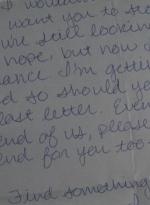 want you to
still looking
hope, but now
I'm
d so should
last letter. Even
end of us, please
end for you too
Find something